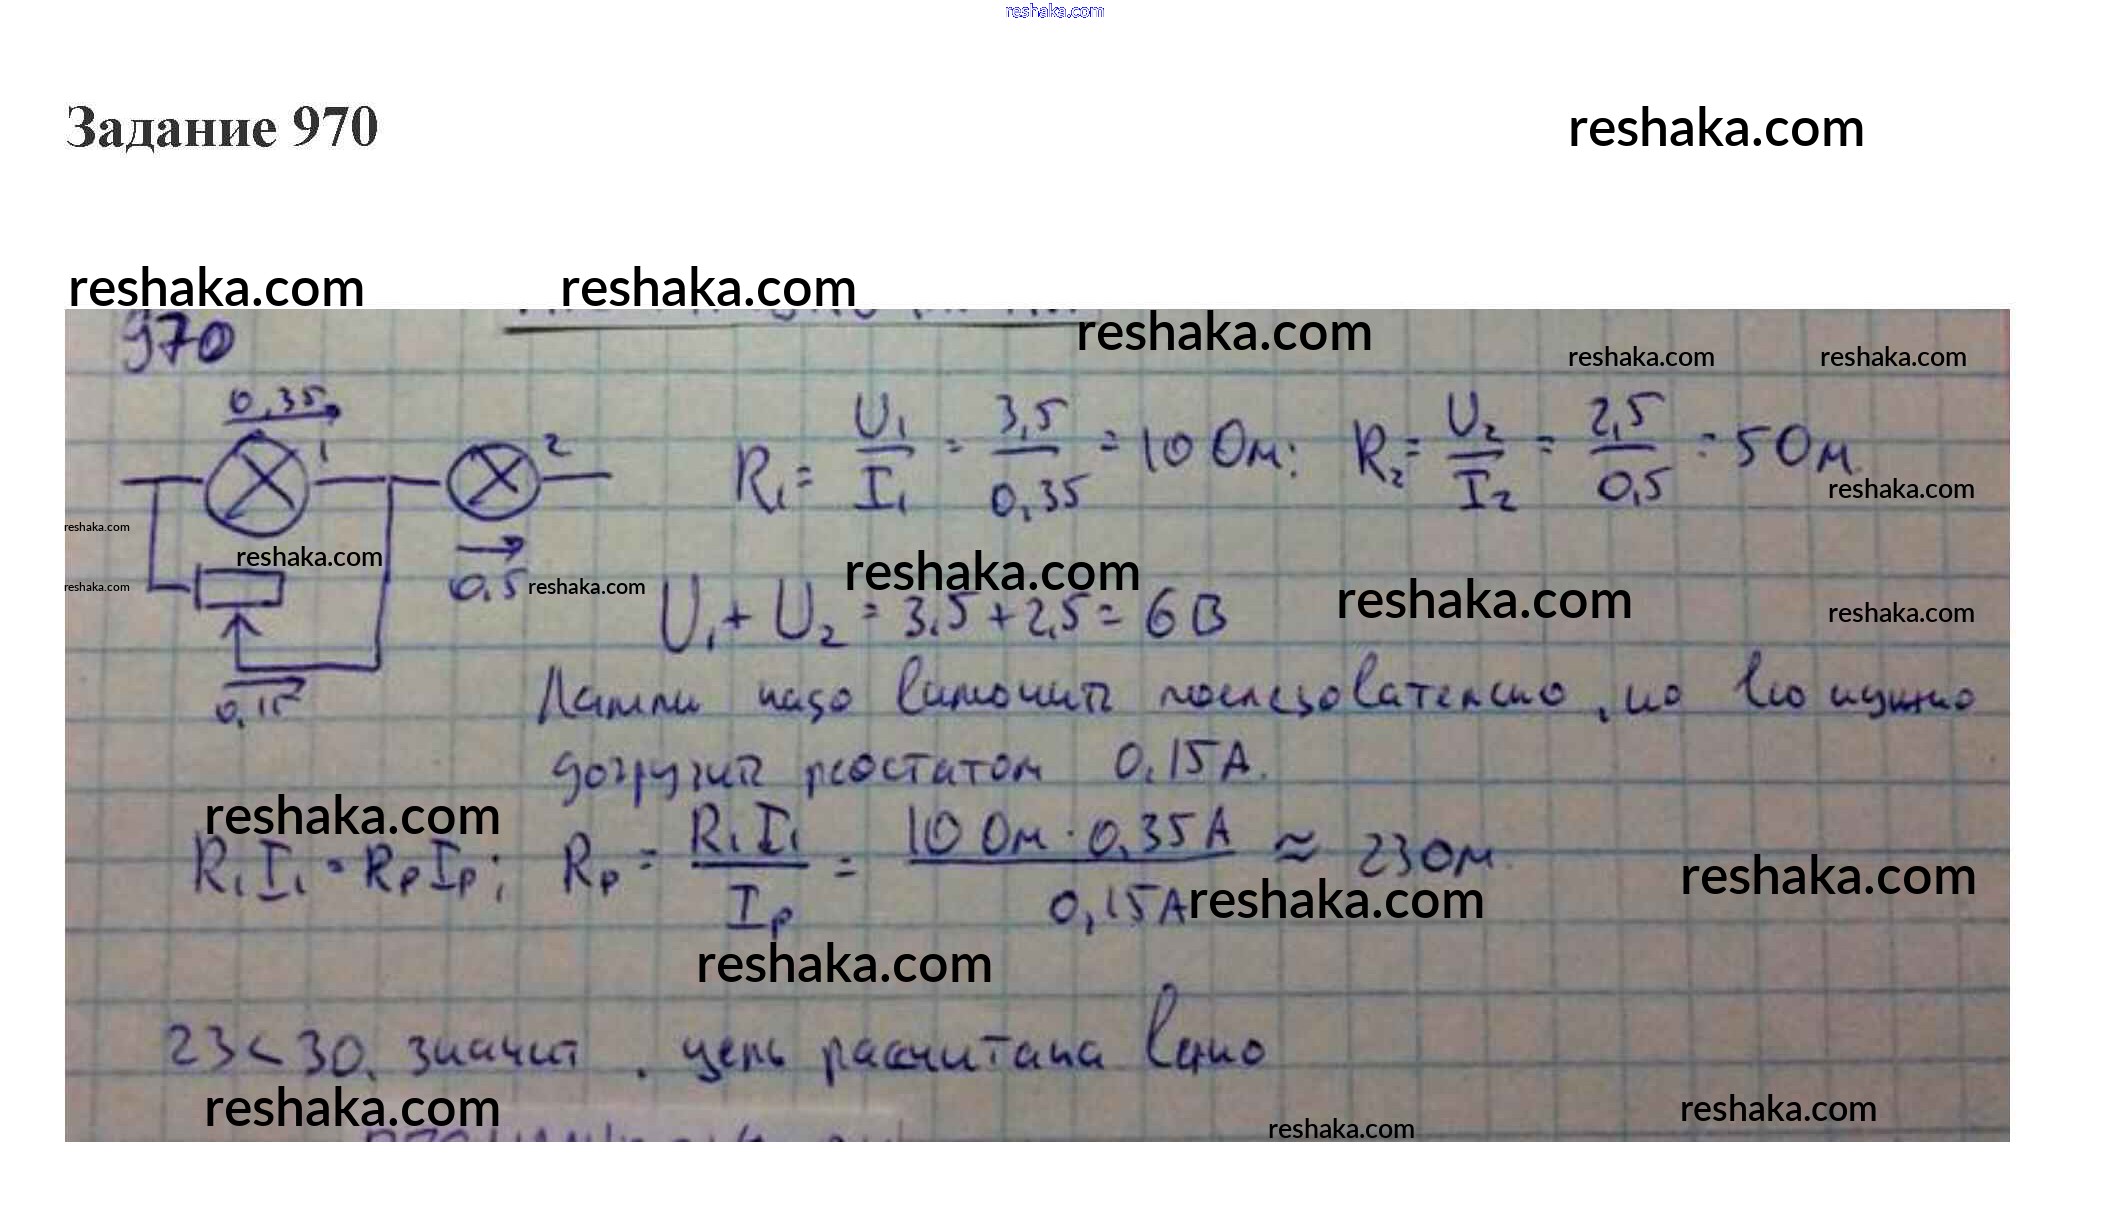 reshaka.com
Задание 970
reshaka.com
reshaka.com reshaka.com
970
reshaka.com
reshaka.com reshaka.com
0,35
1 2
R₁ = U₁/I₁ = 3,5/0,35 = 10 Ом; R₂ = U₂/I₂ = 2,5/0,5 = 5 Ом
reshaka.com
reshaka.com
reshaka.com
reshaka.com
reshaka.com
0,5 reshaka.com
reshaka.com
reshaka.com
U₁ + U₂ = 3,5 + 2,5 = 6 В
reshaka.com
0,15
Лампы надо включить последовательно, но нужно
догрузить реостатом 0,15 А.
reshaka.com
R₁I₁ = RрIр; Rр = R₁I₁/Iр = 10 Ом · 0,35 А/0,15 А ≈ 23 Ом
reshaka.com
reshaka.com
reshaka.com
23 < 30, значит, цепь расчитана верно
reshaka.com
reshaka.com
reshaka.com